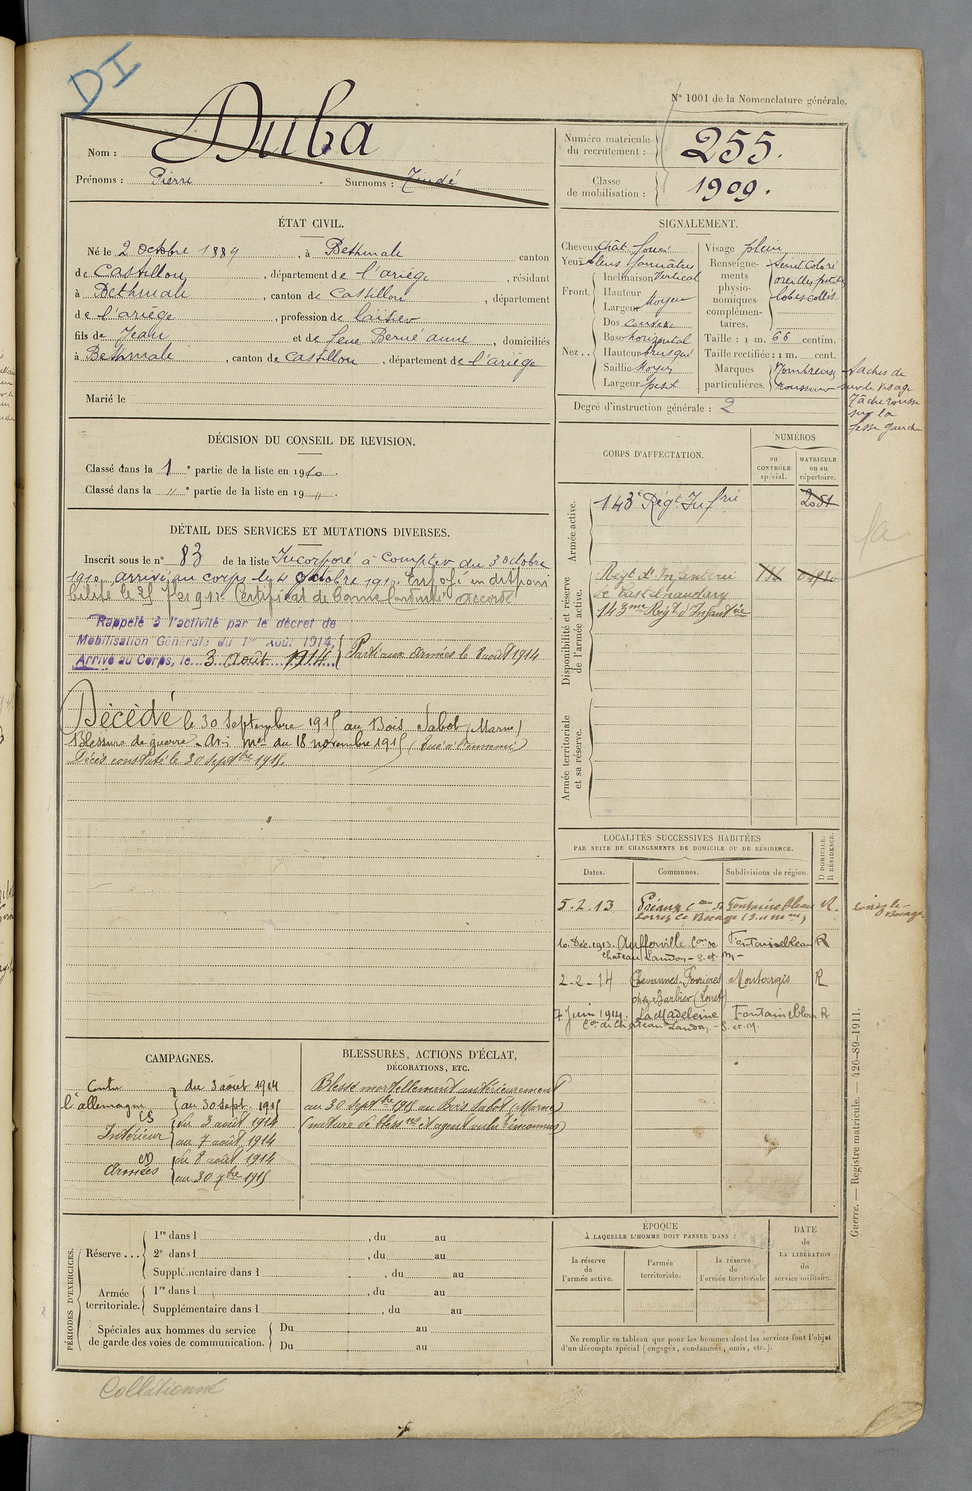 DI
N° 1001 de la Nomenclature générale.
Nom : Duba
Prénoms : Pierre Surnoms :
Numéro matricule du recrutement : 255.
Classe de mobilisation : 1909.
ÉTAT CIVIL.
Né le 2 octobre 1889, à Bethmale canton
de Castillon, département de l'ariège, résidant
à Bethmale, canton de Castillon, département
de l'ariège, profession de laitier
fils de Jean et de feue anne, domiciliés
à Bethmale, canton de Castillon, département de l'ariège
Marié le
SIGNALEMENT.
Cheveux Chât.
Yeux bleus
Front. Inclinaison Vertical
Hauteur
Largeur Moyen
Nez.. Dos
Base horizontal
Hauteur
Saillie Moyen
Largeur petit
Visage plein
Renseignements physionomiques complémentaires. teint Coloré
oreilles petites
lobes collés
Taille : 1 m. 66 centim.
Taille rectifiée : 1 m. cent.
Marques particulières. Nombreuses taches de
rousseur sur le visage
Tâche rousse
sur la
fesse gauche
Degré d'instruction générale : 2
DÉCISION DU CONSEIL DE REVISION.
Classé dans la 1e partie de la liste en 1910.
Classé dans la " e partie de la liste en 19 "
CORPS D'AFFECTATION.
NUMÉROS
au CONTRÔLE spécial.
MATRICULE ou au répertoire.
Armée active.
143e Régt Infrie
Disponibilité et réserve de l'armée active.
Regt d'Infanterie
de Castelnaudary
143me Régt d'Infantie
Armée territoriale et sa réserve.
DÉTAIL DES SERVICES ET MUTATIONS DIVERSES.
Inscrit sous le n° 83 de la liste Incorporé à compter du 3 octobre
1910, arrivé au corps le 4 octobre 1910. Envoyé en disponi
bilité le 25 7bre 1912 Certificat de bonne Conduite Accordé
Rappelé à l'activité par le décret de
Mobilisation Générale du 1er Août 1914,
Arrivé au Corps, le 3 Août 1914. Parti aux Armées le 8 août 1914
Décédé le 30 Septembre 1915 au Bois Sabot (Marne)
Blessure de guerre - Avis mel du 18 novembre 1915 (tué à l'ennemi)
Décès constaté le 30 septbre 1915.
LOCALITÉS SUCCESSIVES HABITÉES
PAR SUITE DE CHANGEMENTS DE DOMICILE OU DE RÉSIDENCE.
Dates. Communes. Subdivisions de région. D DOMICILE. R RÉSIDENCE.
5.2.13 Préaux con de Fontainebleau R.
Lorrez le Bocage (S. et M.)
Lorrez-le-Bocage
10. Déc. 1913. Aufferville. Con de Fontainebleau R
Chateau Landon - S. et M -
2-2-14 Chevannes Ferrières Montargis R
chez Barbier (Loiret)
7 Juin 1914. La Madeleine Fontainebleau R
Con de Chateau Landon. - S. et M.
CAMPAGNES.
Contre l'allemagne du 3 aout 1914
au 30 sept. 1915
Intérieur CS du 3 août 1914
au 7 août 1914
Armées CD du 8 août 1914
au 30 7bre 1915
BLESSURES, ACTIONS D'ÉCLAT,
DÉCORATIONS, ETC.
Blessé mortellement antérieurement
au 30 septbre 1915 au Bois Sabot (Marne)
(nature de blessre et agent vulnt inconnus)
PÉRIODES D'EXERCICES.
Réserve... 1re dans l , du au
2e dans l , du au
Supplémentaire dans l , du au
Armée territoriale. 1re dans l , du au
Supplémentaire dans l , du au
Spéciales aux hommes du service de garde des voies de communication. Du au
Du au
ÉPOQUE
À LAQUELLE L'HOMME DOIT PASSER DANS :
la réserve de l'armée active.
l'armée territoriale.
la réserve de l'armée territoriale
DATE de LA LIBÉRATION du service militaire.
Ne remplir ce tableau que pour les hommes dont les services font l'objet
d'un décompte spécial (engagés, condamnés, omis, etc.).
Guerre. — Registre matricule. — 426-89-1911.
Collationné